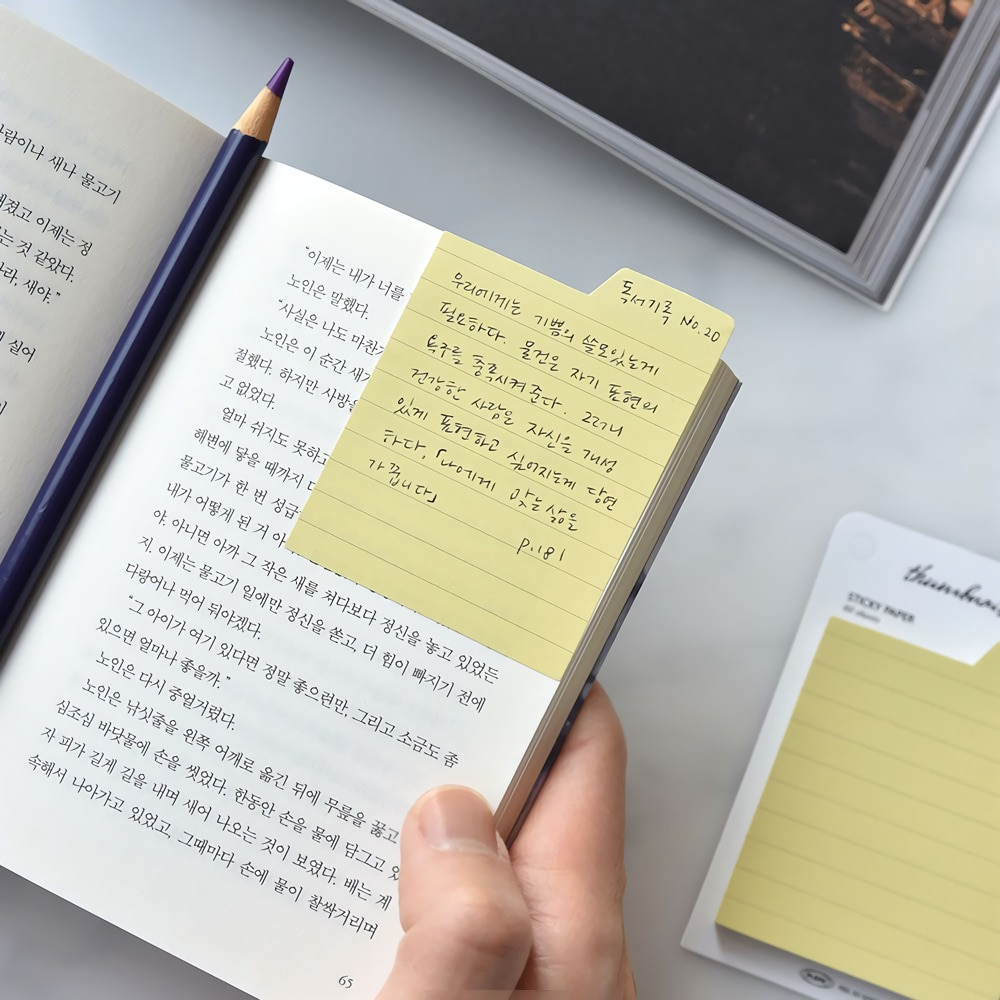 람이나 새나 물고기
졌고 이제는 정
는 것 같았다.
라, 새야."
실어
"이제는 내가 너를
노인은 말했다.
"사실은 나도 마찬가
노인은 이 순간 새가
절했다. 하지만 사방을
고 없었다.
얼마 쉬지도 못하고
해변에 닿을 때까지 더
물고기가 한 번 성급
내가 어떻게 된 거 아
야. 아니면 아까 그 작은 새를 쳐다보다 정신을 놓고 있었든
지. 이제는 물고기 일에만 정신을 쏟고, 더 힘이 빠지기 전에
다랑어나 먹어 둬야겠다.
"그 아이가 여기 있다면 정말 좋으련만, 그리고 소금도 좀
있으면 얼마나 좋을까."
노인은 다시 중얼거렸다.
노인은 낚싯줄을 왼쪽 어깨로 옮긴 뒤에 무릎을 꿇고
심조심 바닷물에 손을 씻었다. 한동안 손을 물에 담그고 있
자 피가 길게 길을 내며 새어 나오는 것이 보였다. 배는 계
속해서 나아가고 있었고, 그때마다 손에 물이 찰싹거리며
65
독서기록 No.20
우리에게는 기쁨의 쓸모있는게
필요하다. 물건은 자기 표현의
욕구를 충족시켜준다. 그러니
건강한 사람은 자신을 개성
있게 표현하고 싶어지는게 당연
하다, 「나에게 맞는 삶을
가꿉니다」
p.181
STICKY PAPER
60 sheets